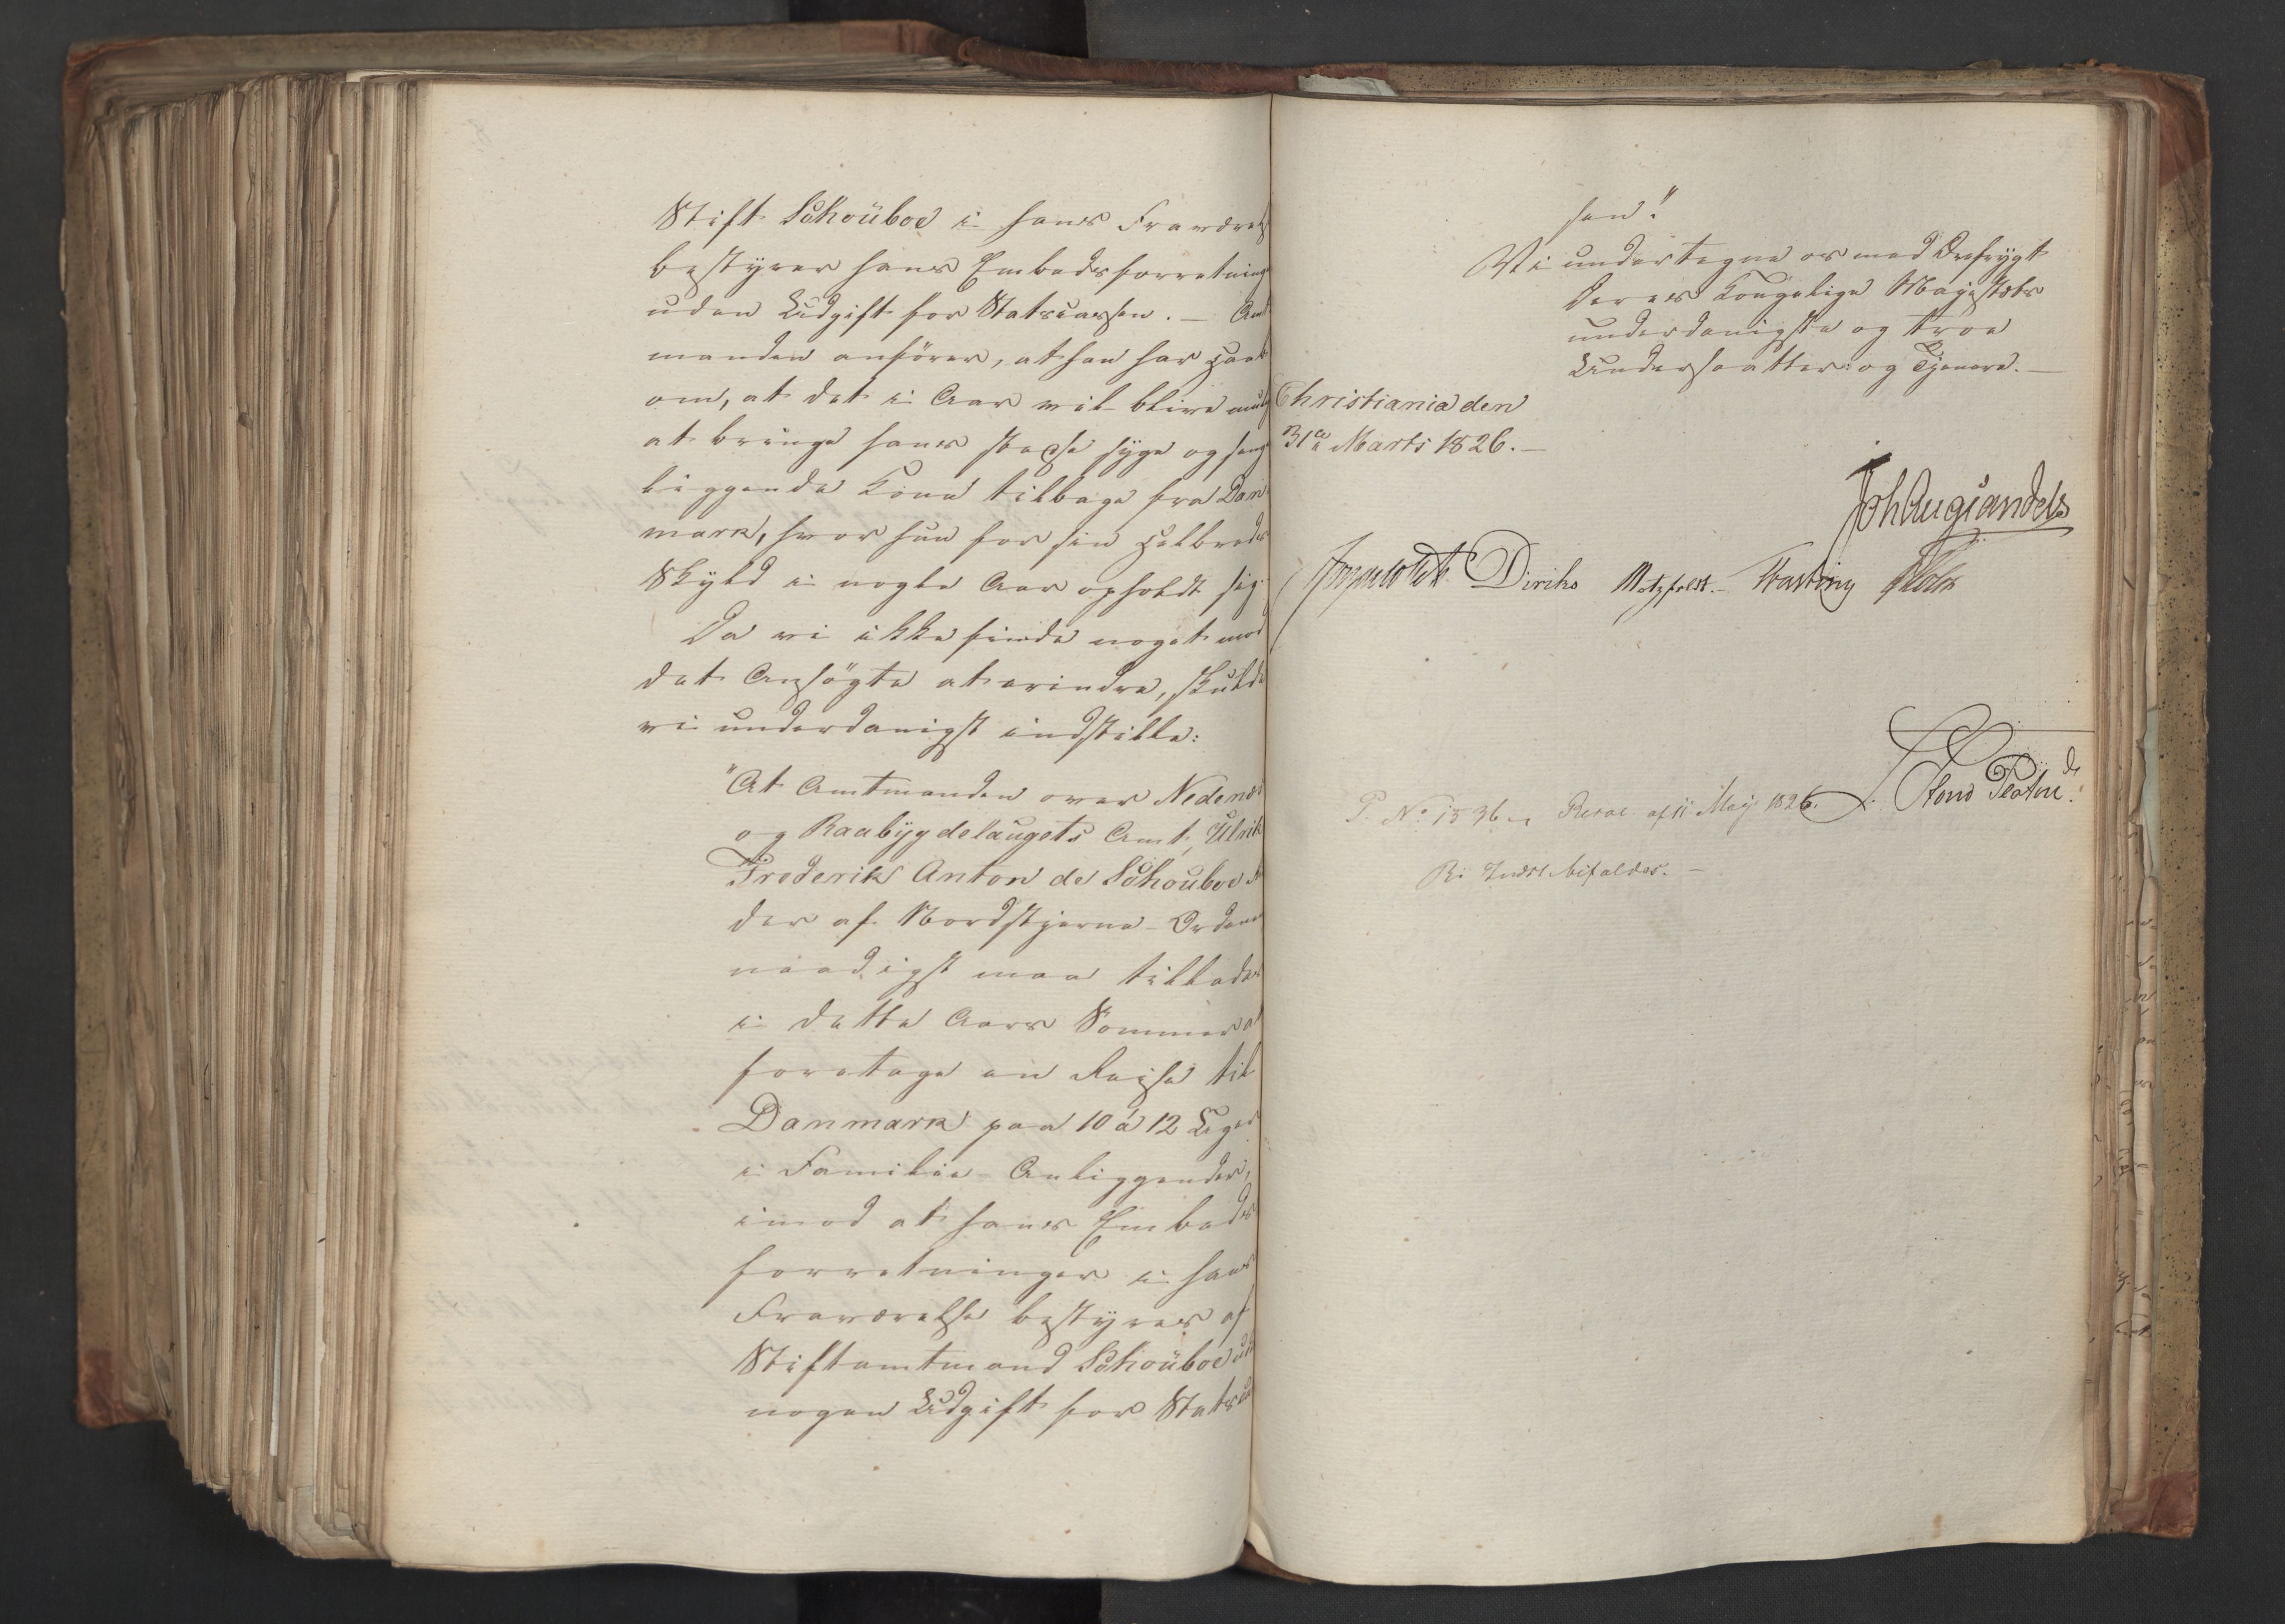 Stift Schouboe i hans Fraværelse
bestyrer hans Embedsforretning
uden Udgift for Statscassen. — Amt
manden anförer, at han har Haab
om, at det i Aar vil blive mulig
at bringe hans stedse syge og seng
liggende Kone tilbage fra Dan
mark, hvor hun for sin Helbreds
Skyld i nogle Aar opholdt sig.
Da vi ikke finde noget mod
det Ansögte at erindre, skulde
vi underdanigst indstille:
"At Amtmanden over Nedenæs
og Raabygdelaugets Amt, Ulrik
Frederik Anton de Schouboe Rid
der af Nordstjerne-Ordenen
naadigst maa tillades
i dette Aars Sommer at
foretage en Reise til
Danmark paa 10 à 12 Uger
i Familie-Anliggender,
imod at hans Embeds
forretninger i hans
Fraværelse bestyres af
Stiftamtmand Schouboe uden
nogen Udgift for Statscas
sen."
Vi undertegne os med Ærefrygt
Deres Kongelige Majestæts
underdanigste og troe
Undersaatter og Tjenere. —
Christiania den
31te Marts 1826. —
Joh Aug Sandels
Diriks Motzfeldt. Fasting
P. No 1536 — Resol. af 11 May 1826.
R: Indst. bifaldes. —